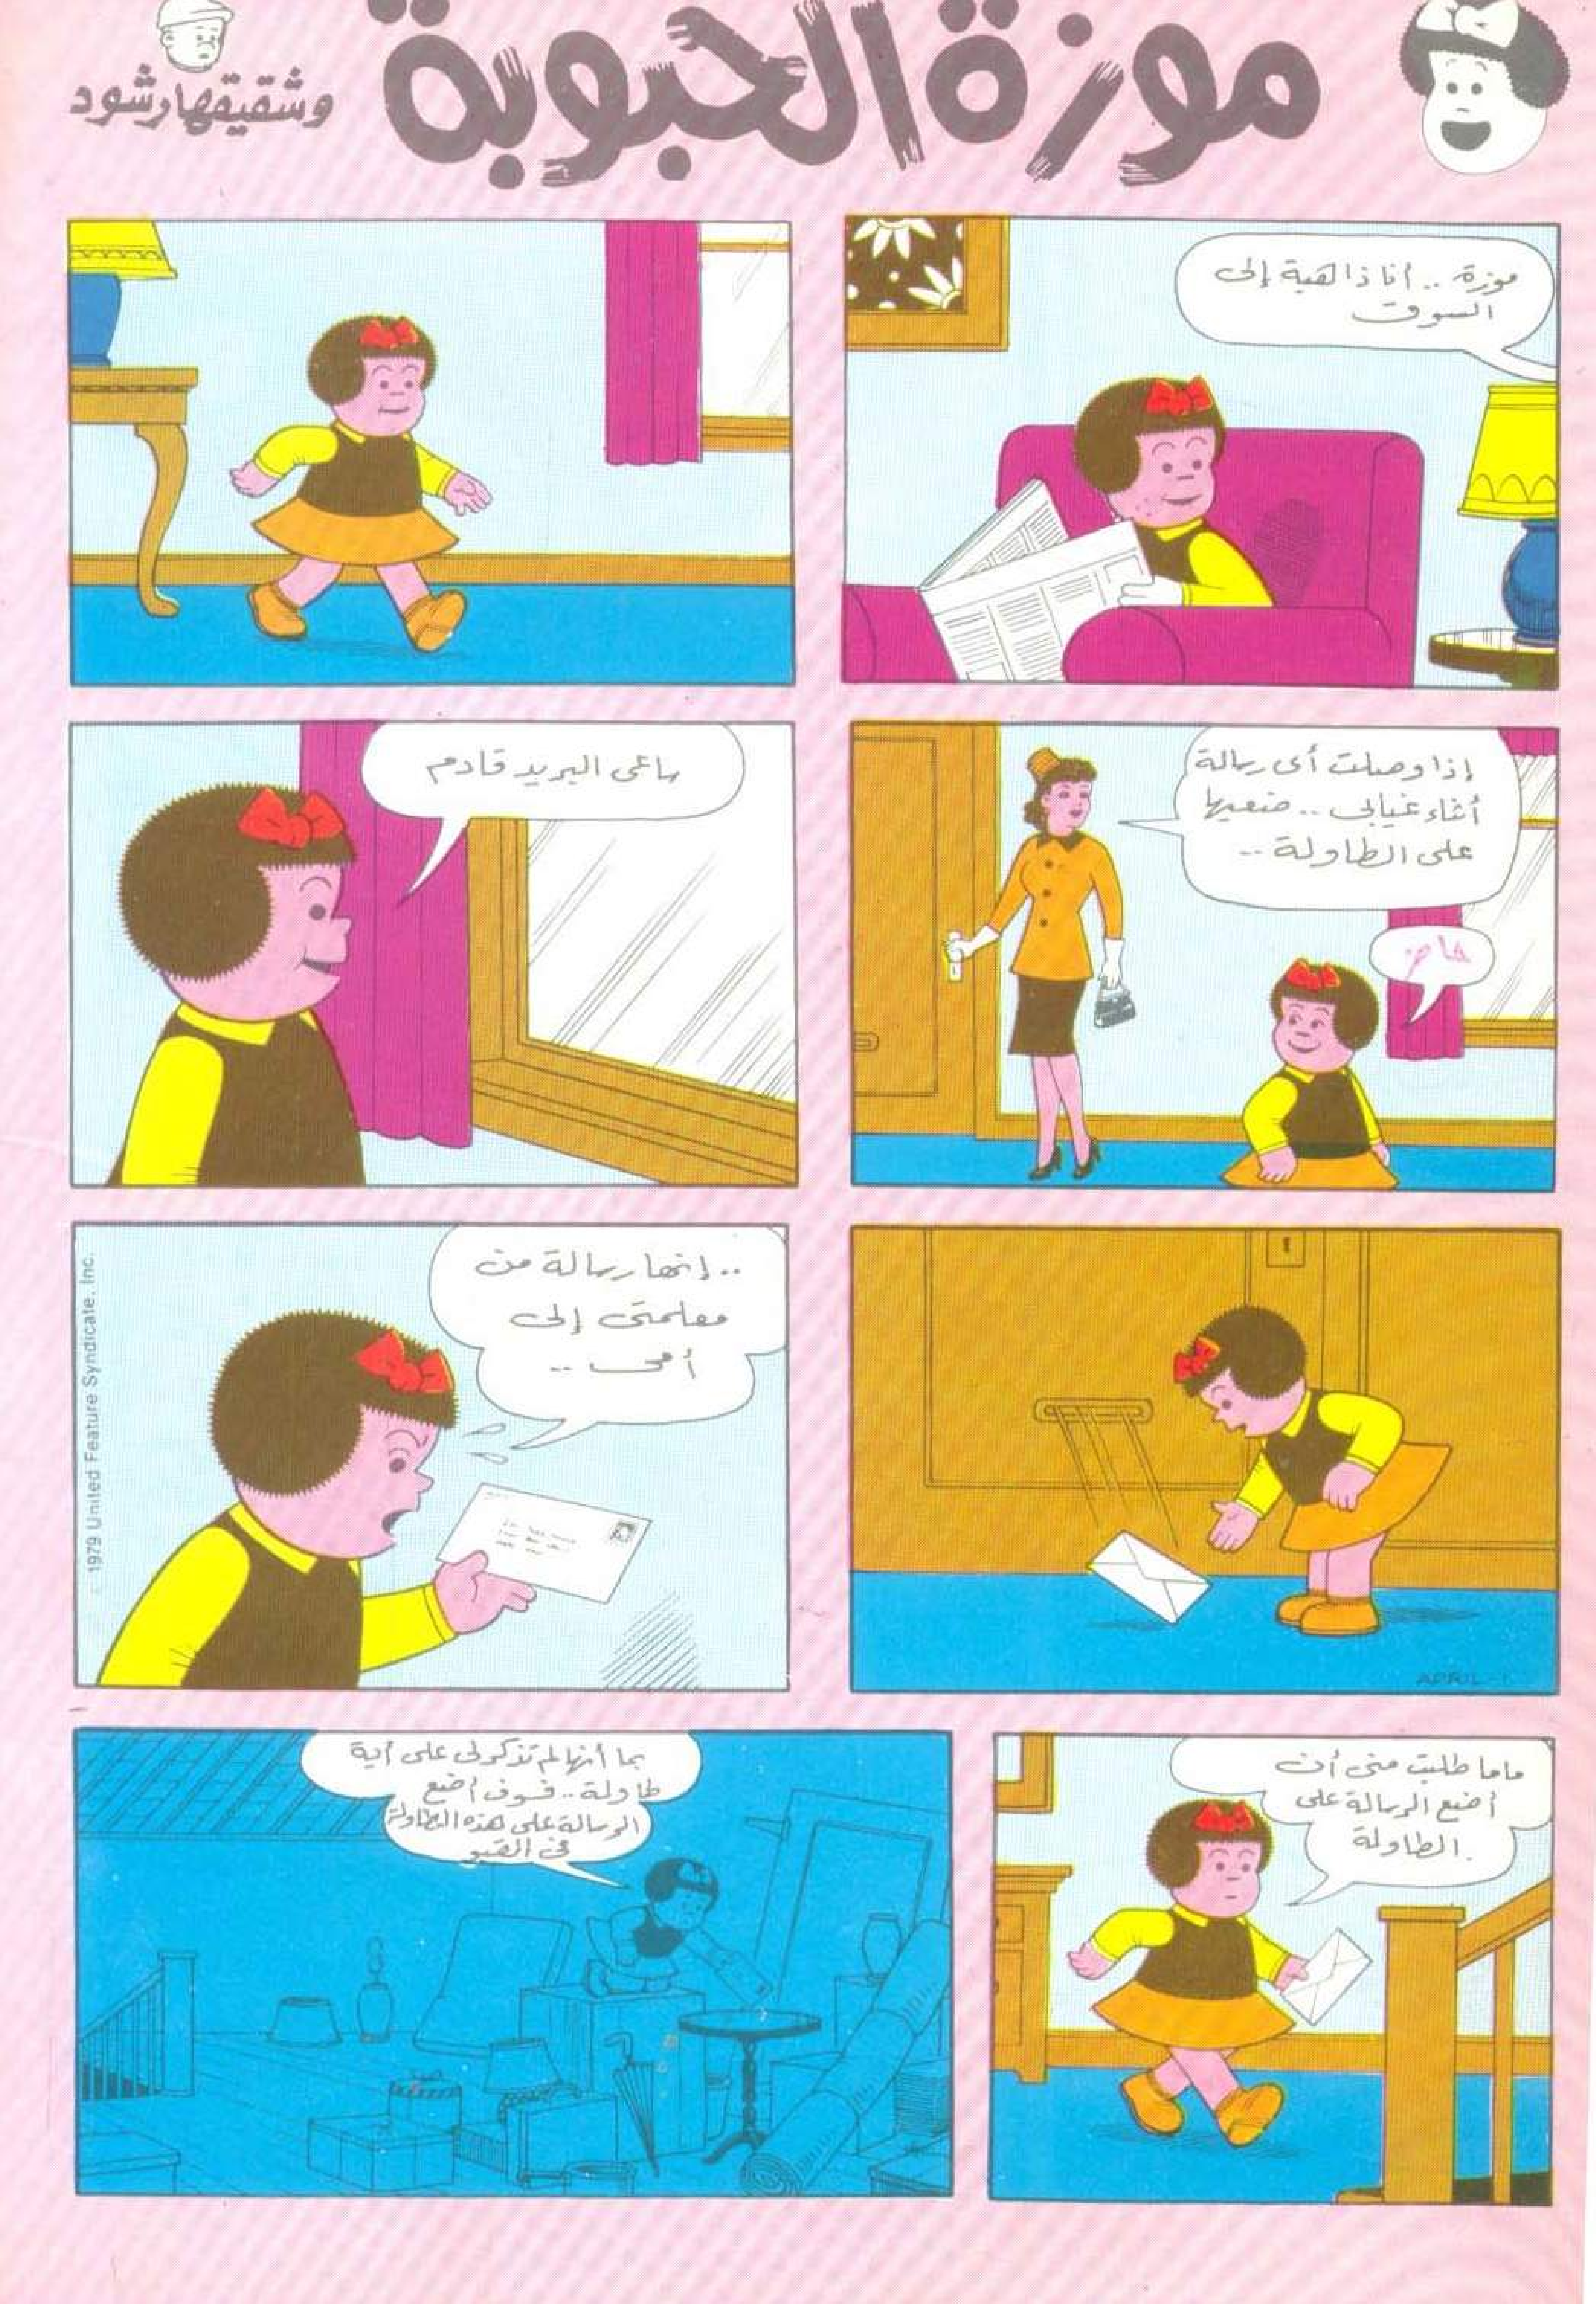 موزة الحبوبة
وشقيقها رشود
موزة .. أنا ذاهبة إلى
السوق
إذا وصلت أى رسالة
أثناء غيابى .. ضعيها
على الطاولة ..
حاضر
ساعى البريد قادم
APRIL-1
.. إنها رسالة من
معلمتى إلى
أمى ..
1979 United Feature Syndicate, Inc.
ماما طلبت منى أن
أضع الرسالة على
الطاولة.
بما أنها لم تذكر لى على أية
طاولة .. فسوف أضع
الرسالة على هذه الطاولة
فى القبو